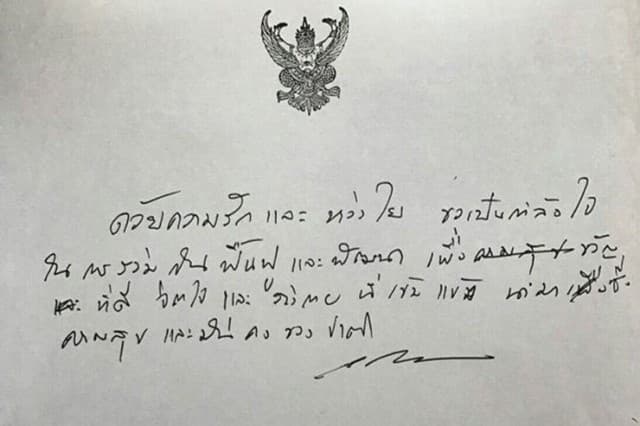 ด้วยความรัก และ ห่วงใย ขอเป็นกำลังใจ
ใน การร่วมกัน ฟื้นฟู และ พัฒนา เพื่อ ความสุข ขวัญ
และ ที่ดี จิตใจ และ ร่างกาย ที่ เข้มแข็ง นำมา ซึ่ง
ความสุข และมั่นคง ของ ชาติ